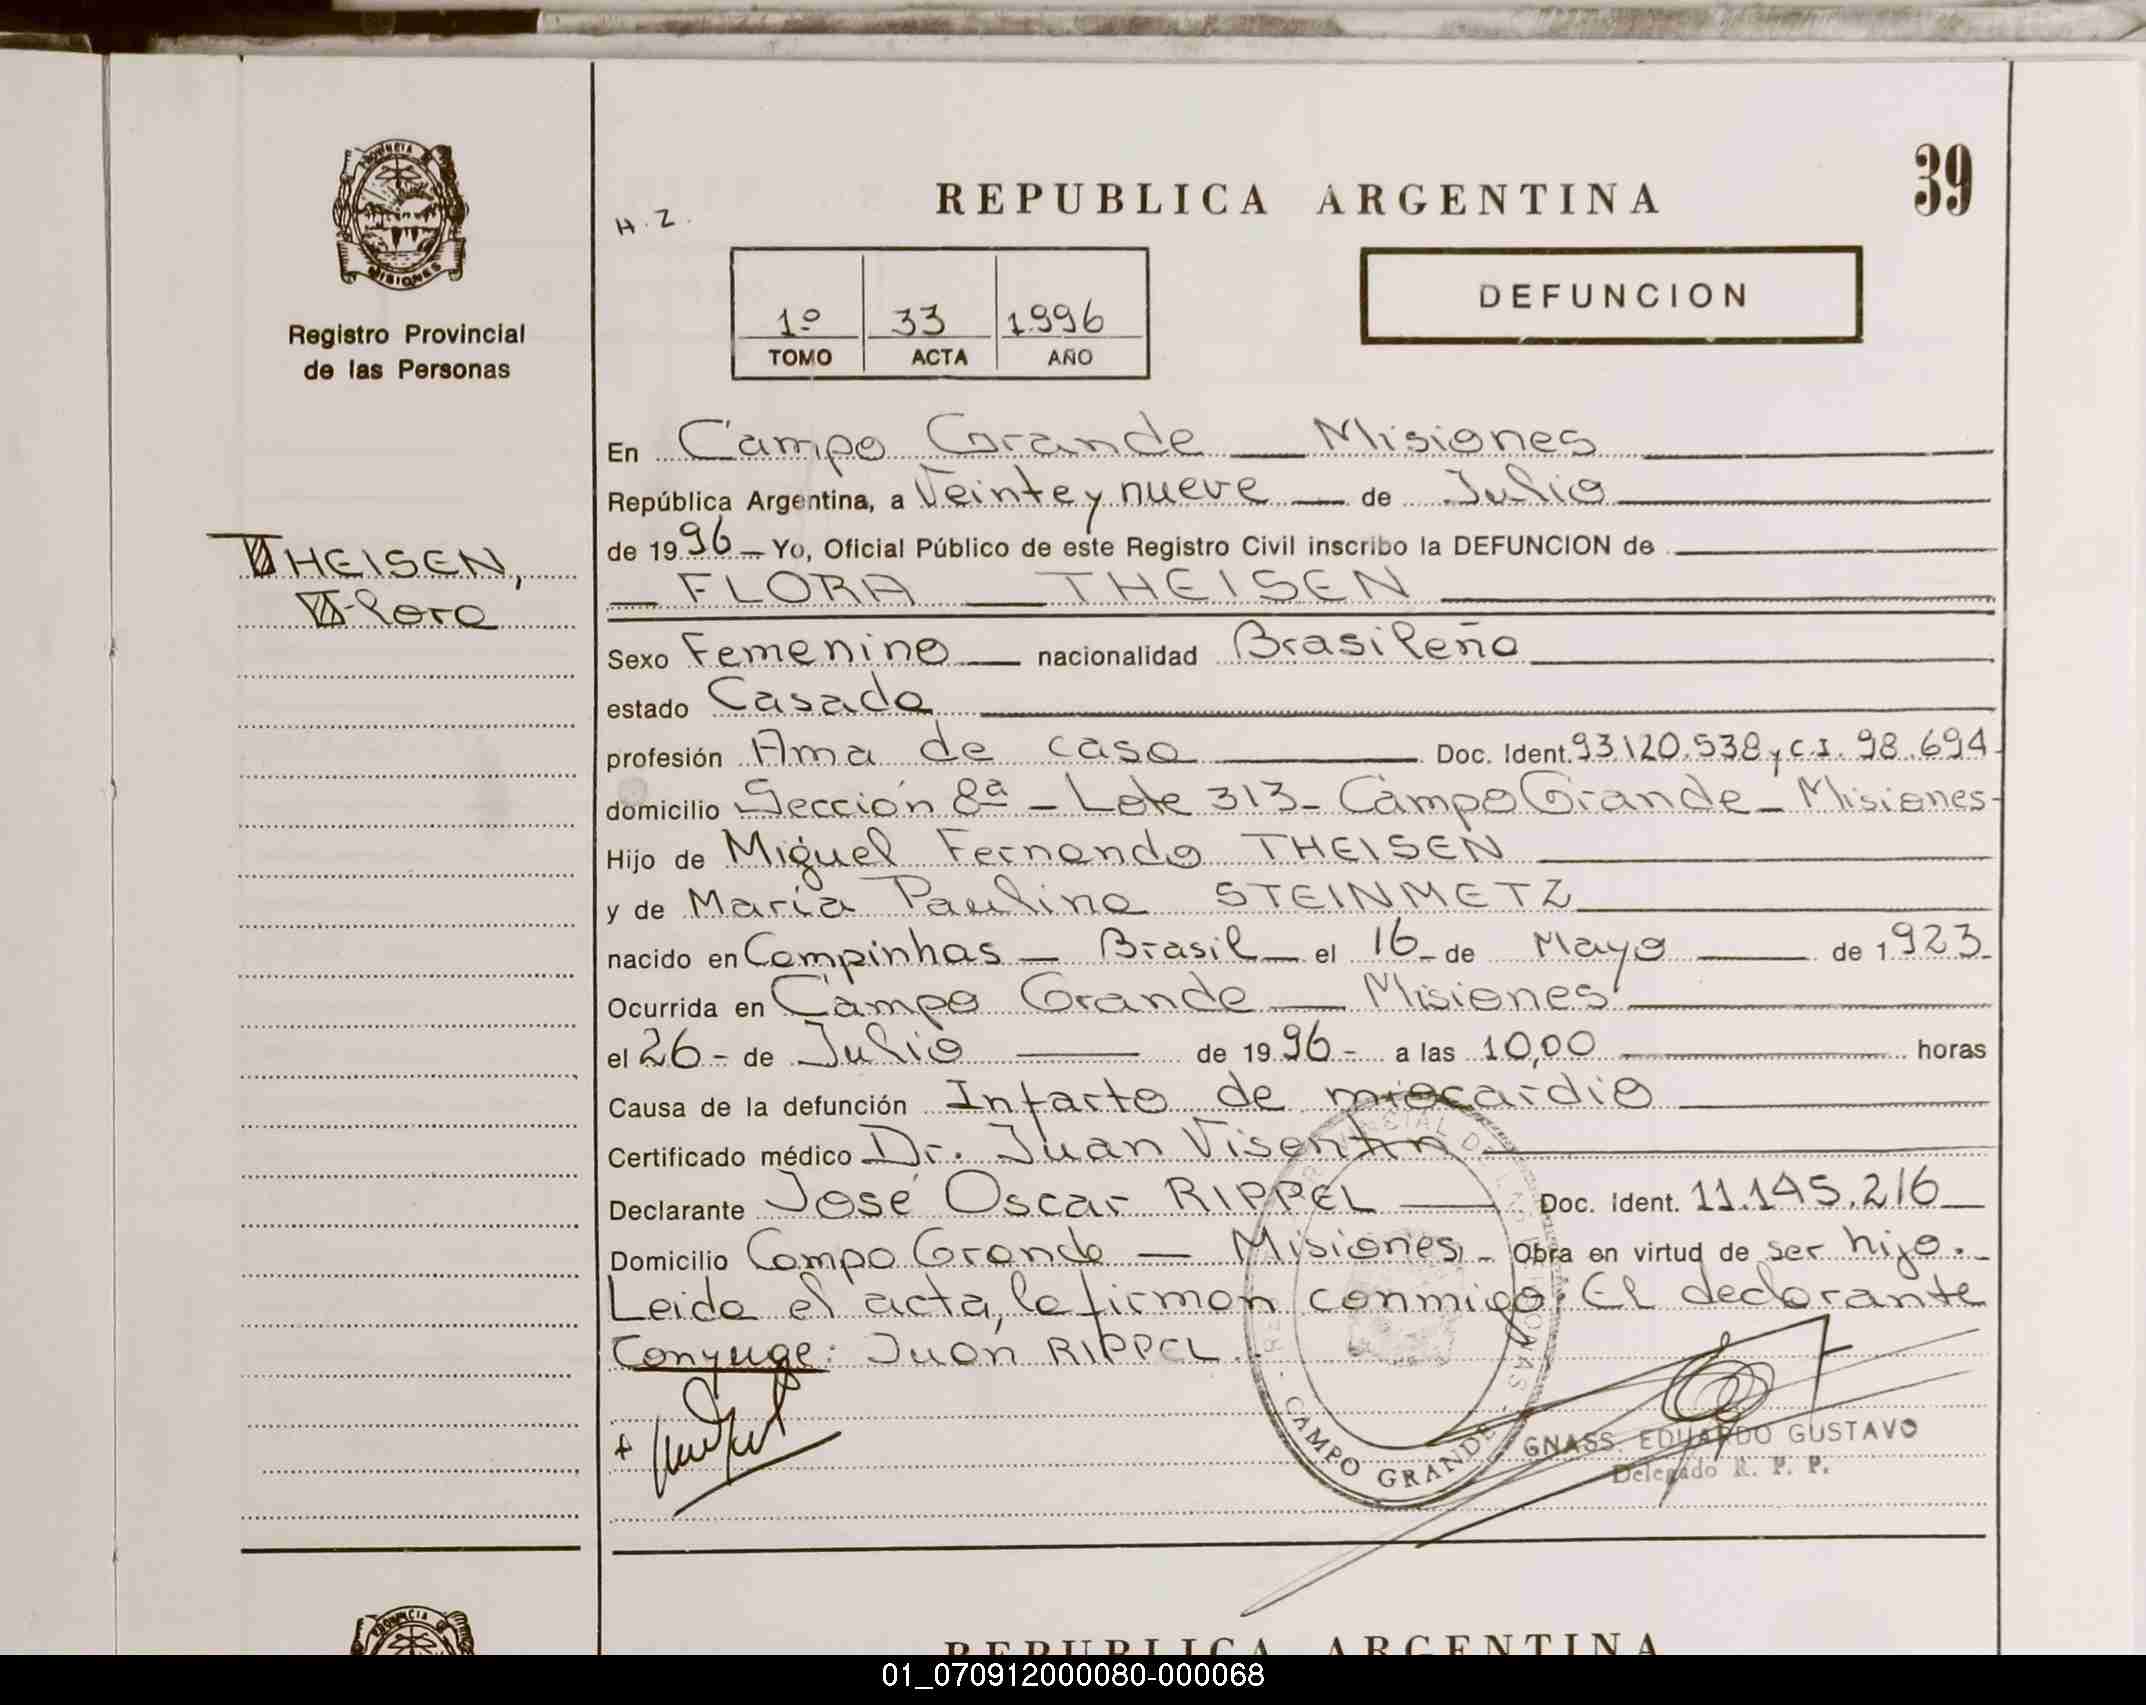 PROVINCIA DE
MISIONES
Registro Provincial
de las Personas
THEISEN,
Flora
H.Z.
REPUBLICA ARGENTINA
39
1º 33 1996
TOMO ACTA AÑO
DEFUNCION
En Campo Grande — Misiones
República Argentina, a Veinte y nueve — de Julio
de 1996 — Yo, Oficial Público de este Registro Civil inscribo la DEFUNCION de
— FLORA — THEISEN
Sexo Femenino — nacionalidad Brasileña
estado Casada
profesión Ama de casa — Doc. Ident. 93.120.538 y C.I. 98.694-
domicilio Sección 8ª - Lote 313 - Campo Grande - Misiones-
Hijo de Miguel Fernando THEISEN
y de María Paulina STEINMETZ
nacido en Campinhas — Brasil — el 16 - de Mayo — de 1923-
Ocurrida en Campo Grande — Misiones
el 26 - de Julio — de 1996 - a las 10,00 — horas
Causa de la defunción Infarto de miocardio
Certificado médico Dr. Juan Visentin
Declarante José Oscar RIPPEL — Doc. Ident. 11.145.216
Domicilio Campo Grande — Misiones - Obra en virtud de ser hijo.-
Leida el acta, la firman conmigo: El declarante
Conyuge: Juan RIPPEL.
CAMPO GRANDE
GNASS. EDUARDO GUSTAVO
Delegado R. P. P.
PROVINCIA
REPUBLICA ARGENTINA
01_070912000080-000068